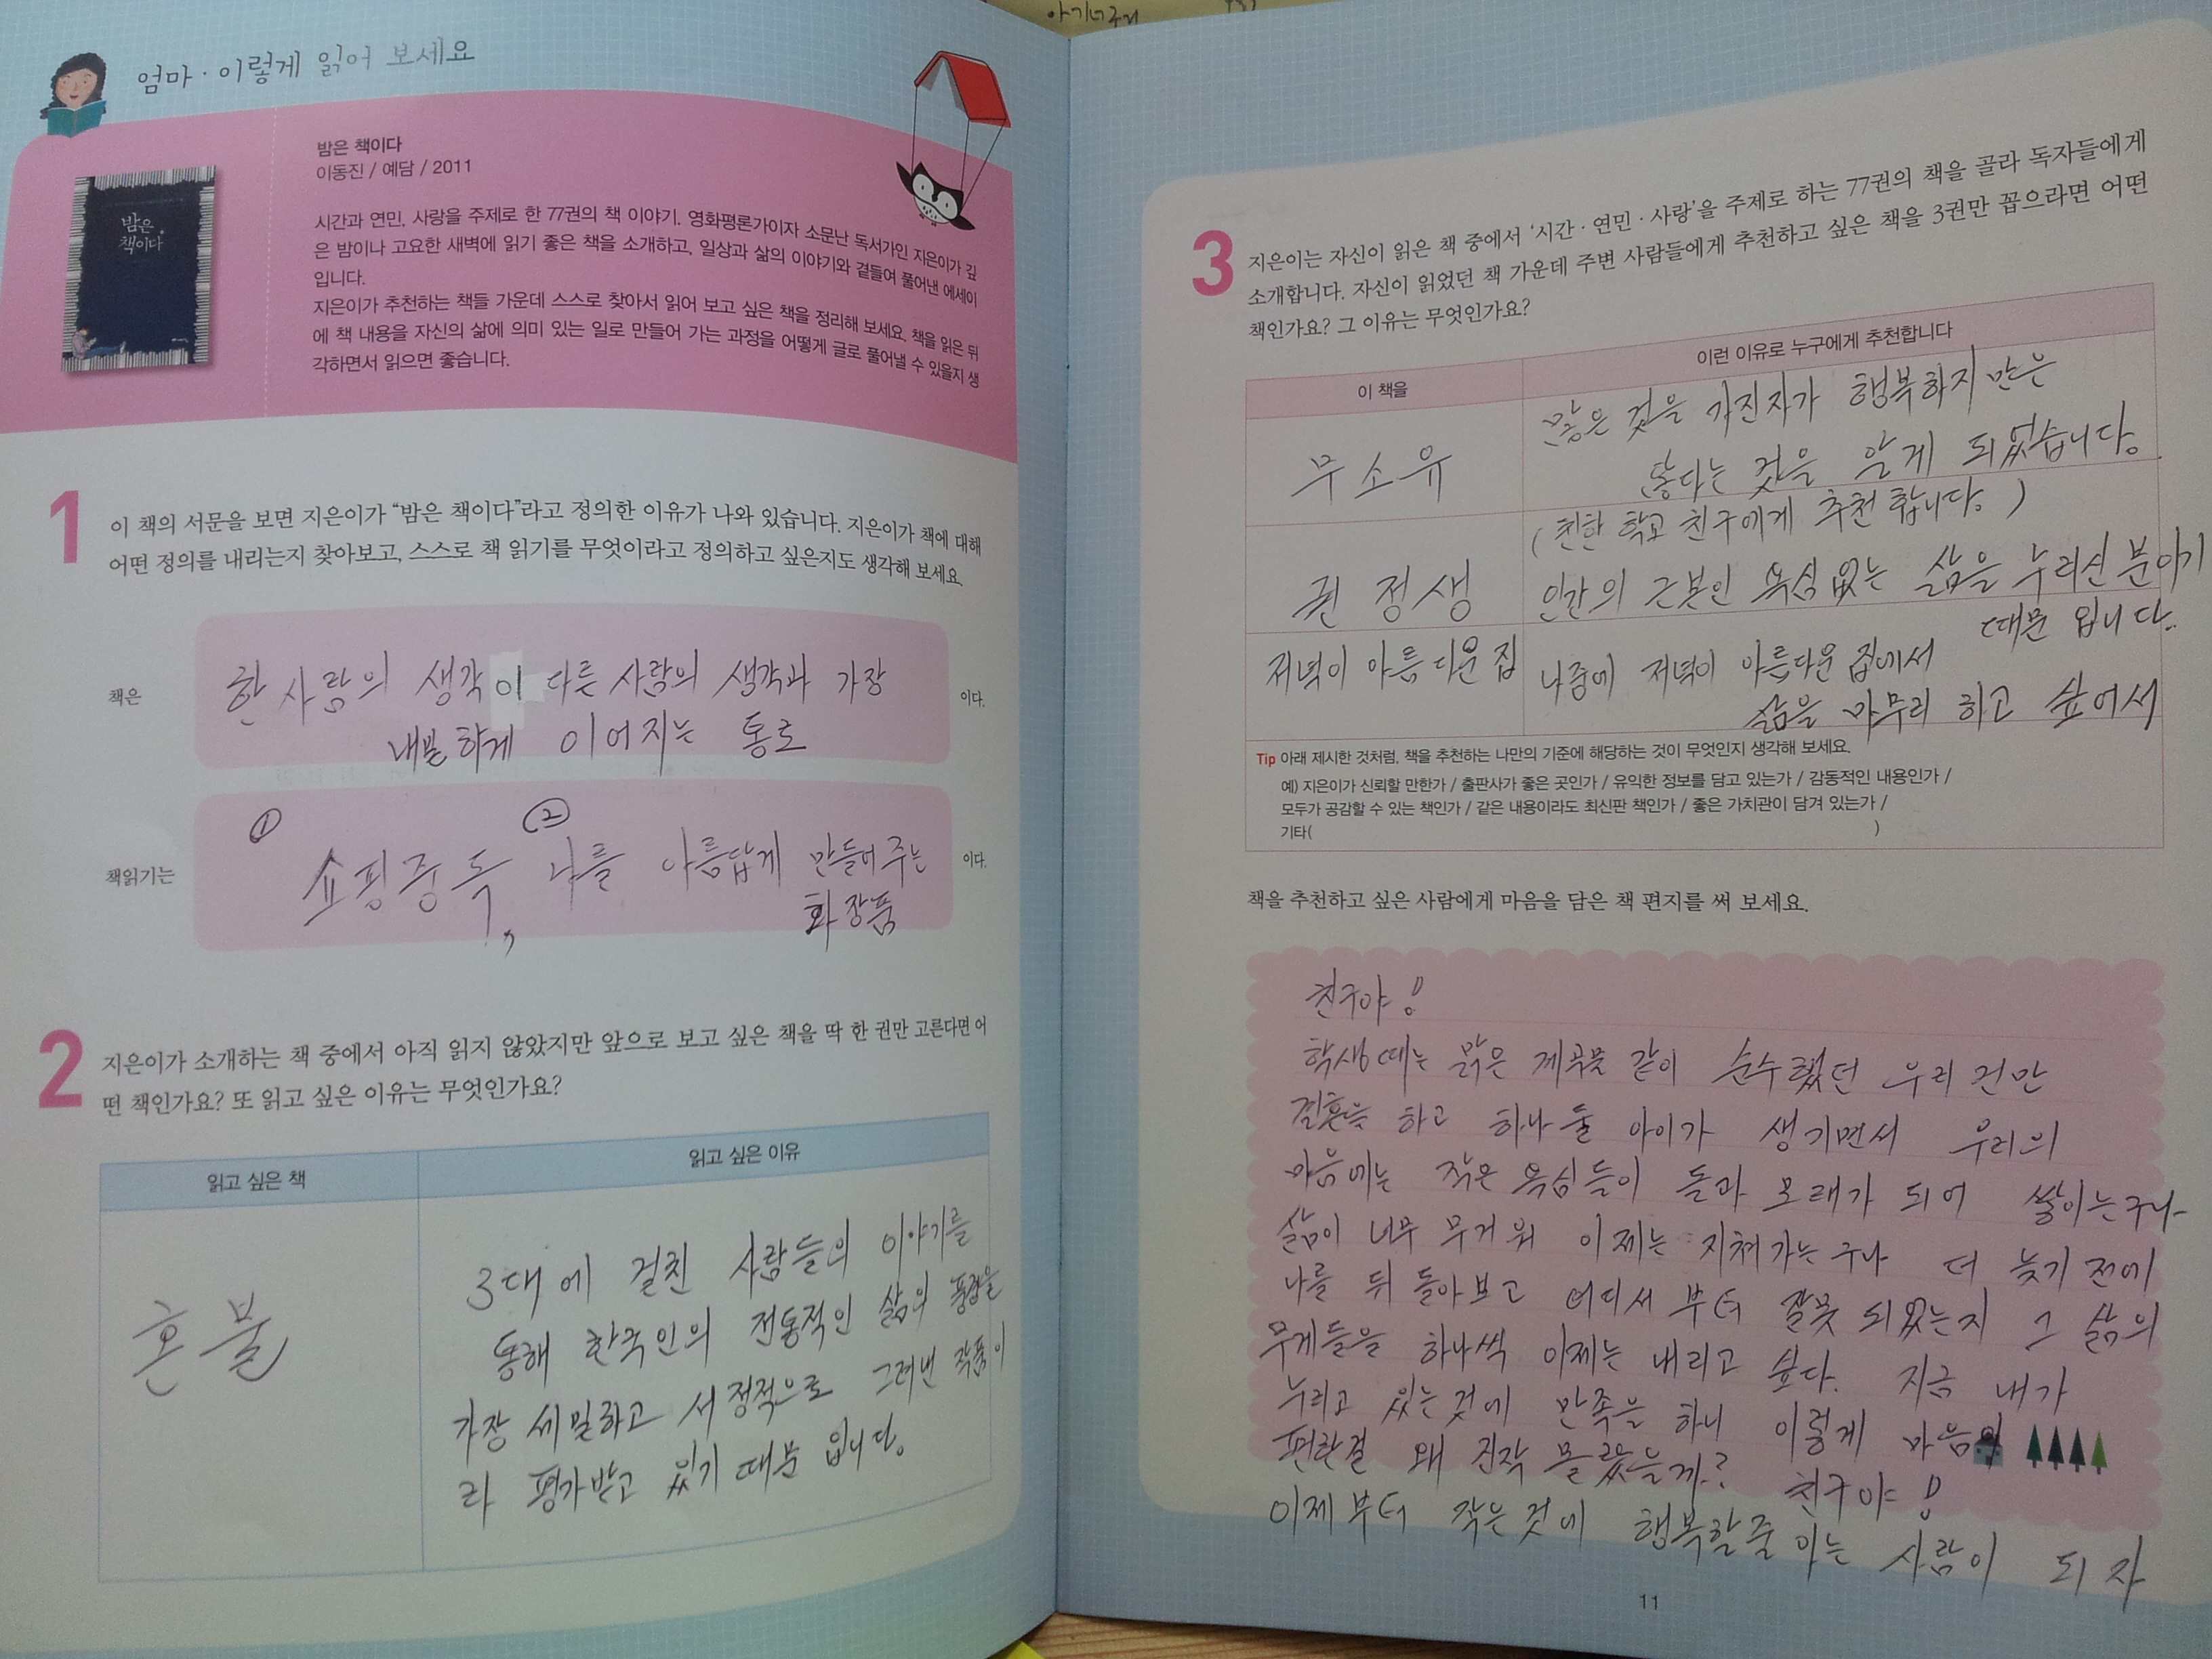 엄마 · 이렇게 읽어 보세요
밤은
책이다
밤은 책이다
이동진 / 예담 / 2011
시간과 연민, 사랑을 주제로 한 77권의 책 이야기. 영화평론가이자 소문난 독서가인 지은이가 깊
은 밤이나 고요한 새벽에 읽기 좋은 책을 소개하고, 일상과 삶의 이야기와 곁들여 풀어낸 에세이
입니다.
지은이가 추천하는 책들 가운데 스스로 찾아서 읽어 보고 싶은 책을 정리해 보세요. 책을 읽은 뒤
에 책 내용을 자신의 삶에 의미 있는 일로 만들어 가는 과정을 어떻게 글로 풀어낼 수 있을지 생
각하면서 읽으면 좋습니다.
1
이 책의 서문을 보면 지은이가 “밤은 책이다”라고 정의한 이유가 나와 있습니다. 지은이가 책에 대해
어떤 정의를 내리는지 찾아보고, 스스로 책 읽기를 무엇이라고 정의하고 싶은지도 생각해 보세요.
책은 한 사람의 생각이 다른 사람의 생각과 가장 이다.
내밀하게 이어지는 통로
① ②
책읽기는 쇼핑중독, 나를 아름답게 만들어 주는 이다.
화장품
2
지은이가 소개하는 책 중에서 아직 읽지 않았지만 앞으로 보고 싶은 책을 딱 한 권만 고른다면 어
떤 책인가요? 또 읽고 싶은 이유는 무엇인가요?
읽고 싶은 책
읽고 싶은 이유
혼불
3대에 걸친 사람들의 이야기를
통해 한국인의 전통적인 삶의 풍경을
가장 세밀하고 서정적으로 그려낸 작품이
라 평가받고 있기 때문 입니다.
3
지은이는 자신이 읽은 책 중에서 ‘시간 · 연민 · 사랑’을 주제로 하는 77권의 책을 골라 독자들에게
소개합니다. 자신이 읽었던 책 가운데 주변 사람들에게 추천하고 싶은 책을 3권만 꼽으라면 어떤
책인가요? 그 이유는 무엇인가요?
이 책을
이런 이유로 누구에게 추천합니다
무소유
많은 것을 가진자가 행복하지만은
않다는 것을 알게 되었습니다.
(친한 학교 친구에게 추천 합니다.)
권정생
인간의 근본인 욕심없는 삶을 누리신 분이기
때문 입니다.
저녁이 아름다운 집
나중에 저녁이 아름다운 집에서
삶을 마무리 하고 싶어서
Tip 아래 제시한 것처럼, 책을 추천하는 나만의 기준에 해당하는 것이 무엇인지 생각해 보세요.
예) 지은이가 신뢰할 만한가 / 출판사가 좋은 곳인가 / 유익한 정보를 담고 있는가 / 감동적인 내용인가 /
모두가 공감할 수 있는 책인가 / 같은 내용이라도 최신판 책인가 / 좋은 가치관이 담겨 있는가 /
기타( )
책을 추천하고 싶은 사람에게 마음을 담은 책 편지를 써 보세요.
친구야!
학생때는 맑은 계곡물 같이 순수했던 우리 건만
결혼을 하고 하나 둘 아이가 생기면서 우리의
마음에는 작은 욕심들이 돌과 모래가 되어 쌓이는구나
삶이 너무 무거워 이제는 지쳐가는구나 더 늦기 전에
나를 뒤 돌아보고 어디서 부터 잘못 되었는지 그 삶의
무게들을 하나씩 이제는 내리고 싶다. 지금 내가
누리고 있는것에 만족을 하니 이렇게 마음이
편한걸 왜 진작 몰랐을까? 친구야!
이제부터 작은것에 행복할줄 아는 사람이 되자
11